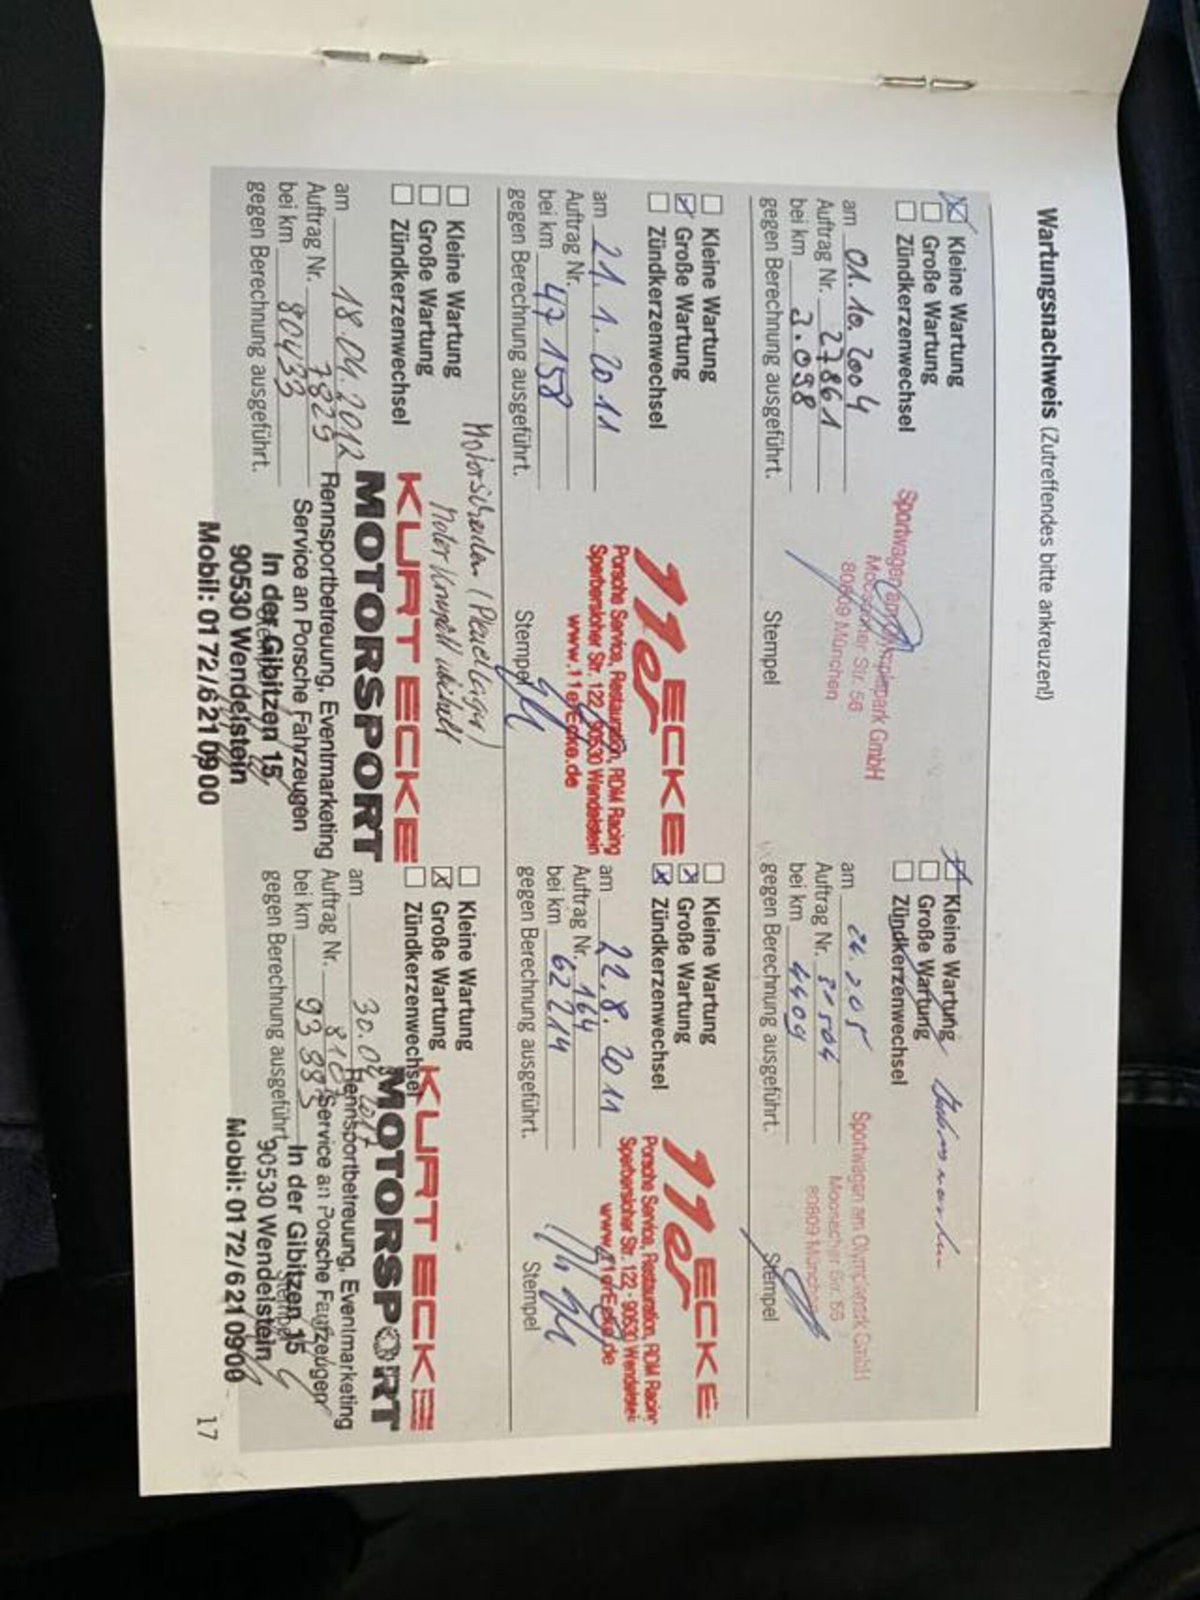 Wartungsnachweis (Zutreffendes bitte ankreuzen!)
Kleine Wartung
Große Wartung
Zündkerzenwechsel
am 01.10.2004
Auftrag Nr. 27861
bei km 3.098
gegen Berechnung ausgeführt.
Sportwagen am Olympiapark GmbH
Moosacher Str. 56
80809 München
Stempel
Kleine Wartung
Große Wartung
Zündkerzenwechsel
am
Auftrag Nr. 31504
bei km 4409
gegen Berechnung ausgeführt.
Sportwagen am Olympiapark GmbH
Moosacher Str. 56
80809 München
Stempel
Kleine Wartung
Große Wartung
Zündkerzenwechsel
am 21.1.2011
Auftrag Nr.
bei km 47158
gegen Berechnung ausgeführt.
11er ECKE
Porsche Service, Restauration, RDM Racing
Sperbersloher Str. 122 · 90530 Wendelstein
www.11erEcke.de
Stempel
Kleine Wartung
Große Wartung
Zündkerzenwechsel
am 22.8.2011
Auftrag Nr. 164
bei km 62214
gegen Berechnung ausgeführt.
11er ECKE
Porsche Service, Restauration, RDM Racing
Sperbersloher Str. 122 · 90530 Wendelstein
www.11erEcke.de
Stempel
Kleine Wartung
Große Wartung
Zündkerzenwechsel
am 18.04.2012
Auftrag Nr. 7825
bei km 80433
gegen Berechnung ausgeführt.
Motorschaden (Pleuellager)
Motor komplett
KURT ECKE
MOTORSPORT
Rennsportbetreuung, Eventmarketing
Service an Porsche Fahrzeugen
In der Gibitzen 15
90530 Wendelstein
Mobil: 01 72/6 21 09 00
Kleine Wartung
Große Wartung
Zündkerzenwechsel
am
Auftrag Nr.
bei km 93883
gegen Berechnung ausgeführt.
KURT ECKE
MOTORSPORT
Rennsportbetreuung, Eventmarketing
Service an Porsche Fahrzeugen
In der Gibitzen 15
90530 Wendelstein
Mobil: 01 72/6 21 09 00
17